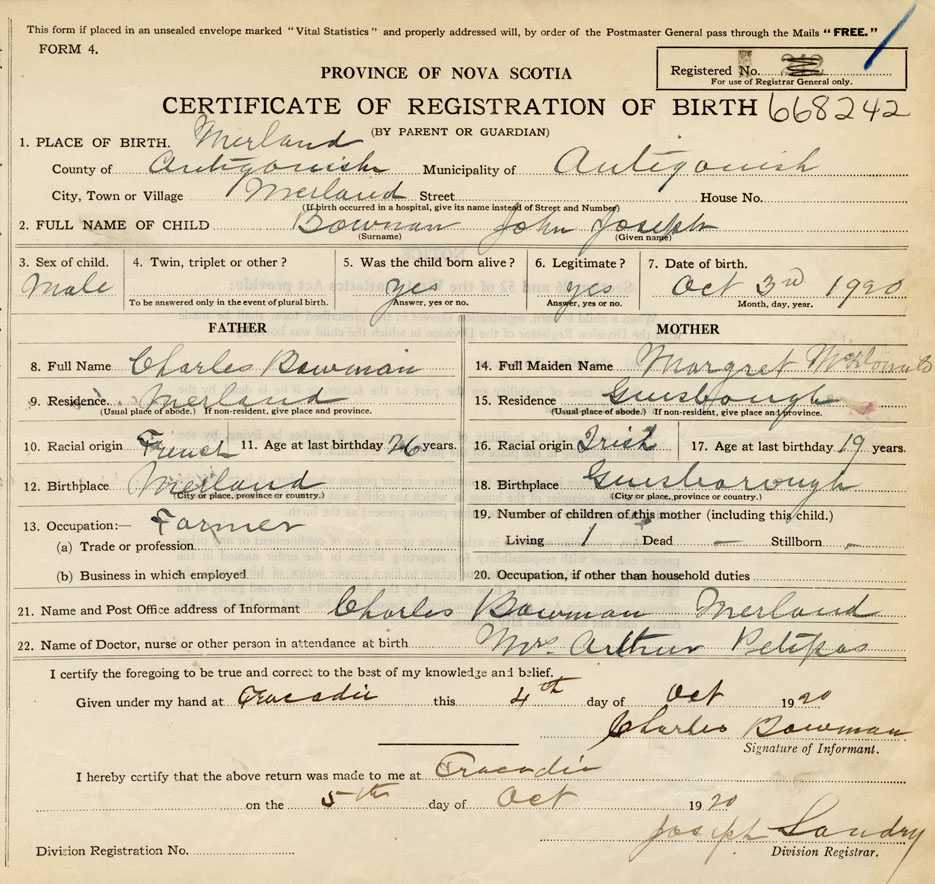 This form if placed in an unsealed envelope marked "Vital Statistics" and properly addressed will, by order of the Postmaster General pass through the Mails "FREE."
FORM 4.
Registered No.
For use of Registrar General only.
PROVINCE OF NOVA SCOTIA
CERTIFICATE OF REGISTRATION OF BIRTH 668242
(BY PARENT OR GUARDIAN)
1. PLACE OF BIRTH. Merland
County of Antigonish Municipality of Antigonish
City, Town or Village Merland Street House No.
(If birth occurred in a hospital, give its name instead of Street and Number)
2. FULL NAME OF CHILD Bowman John Joseph
(Surname) (Given name)
3. Sex of child. 4. Twin, triplet or other? 5. Was the child born alive? 6. Legitimate? 7. Date of birth.
Male yes yes Oct 3rd 1920
To be answered only in the event of plural birth. Answer, yes or no. Answer, yes or no. Month, day, year.
FATHER MOTHER
8. Full Name Charles Bowman 14. Full Maiden Name Margret McDonald
9. Residence. Merland 15. Residence Guisbough
(Usual place of abode.) If non-resident, give place and province. (Usual place of abode.) If non-resident, give place and province.
10. Racial origin French 11. Age at last birthday 26 years. 16. Racial origin Irish 17. Age at last birthday 19 years.
12. Birthplace Merland 18. Birthplace Guisborough
(City or place, province or country.) (City or place, province or country.)
13. Occupation:— Farmer 19. Number of children of this mother (including this child.)
(a) Trade or profession Living 1 Dead — Stillborn -
(b) Business in which employed 20. Occupation, if other than household duties
21. Name and Post Office address of Informant Charles Bowman Merland
22. Name of Doctor, nurse or other person in attendance at birth Mrs. Arthur Petipas
I certify the foregoing to be true and correct to the best of my knowledge and belief.
Given under my hand at Tracadie this 4th day of Oct 1920
Charles Bowman
Signature of Informant.
I hereby certify that the above return was made to me at Tracadie
on the 5th day of Oct 1920
Joseph Landry
Division Registrar.
Division Registration No.